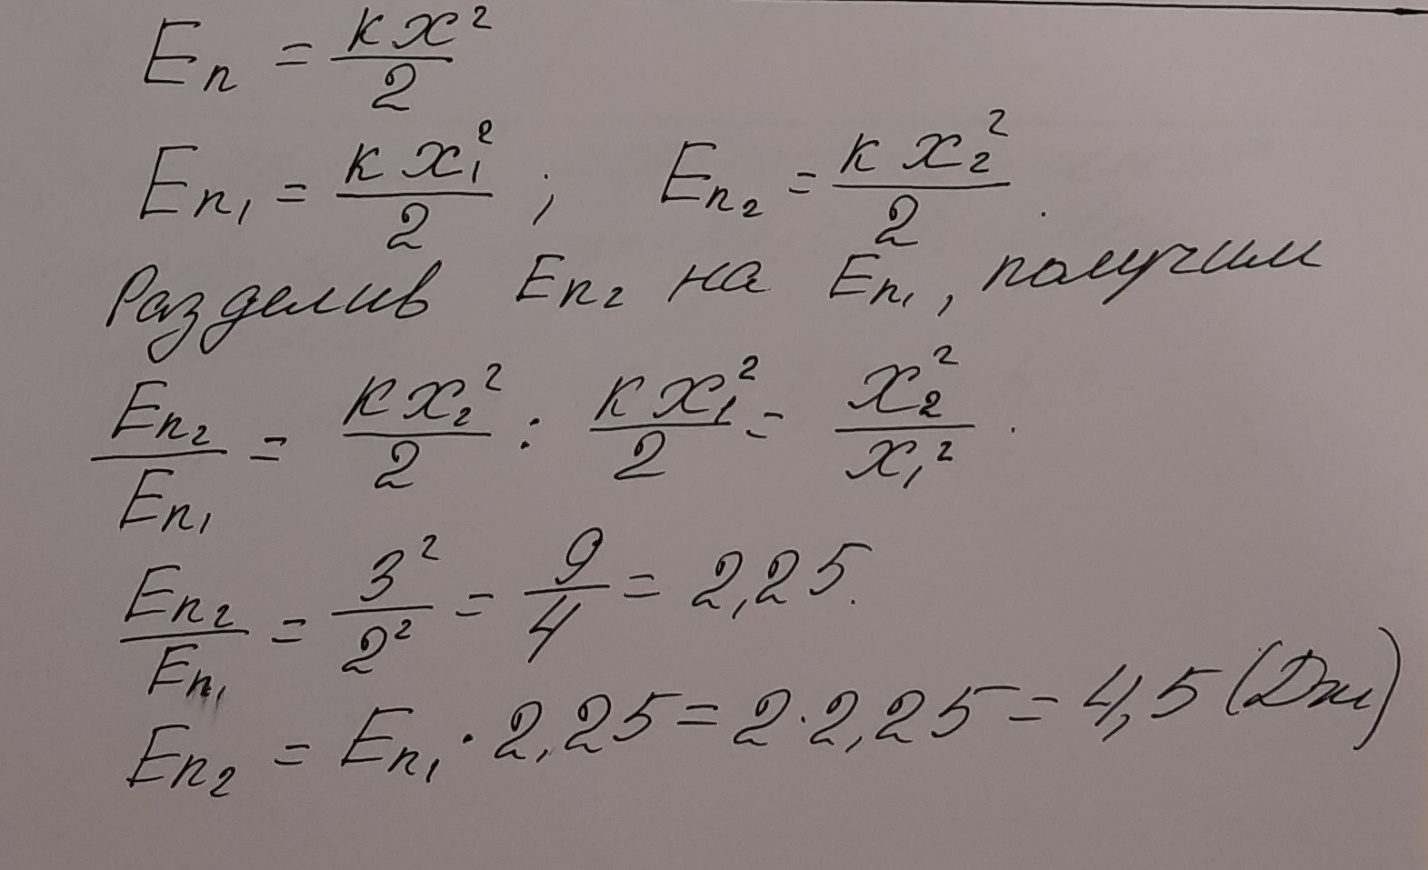 Eп = кx²/2
Eп₁ = кx₁²/2 ; Eп₂ = кx₂²/2.
Разделив Eп₂ на Eп₁, получим
Eп₂/Eп₁ = кx₂²/2 : кx₁²/2 = x₂²/x₁².
Eп₂/Eп₁ = 3²/2² = 9/4 = 2,25.
Eп₂ = Eп₁ · 2,25 = 2·2,25 = 4,5 (Дж)